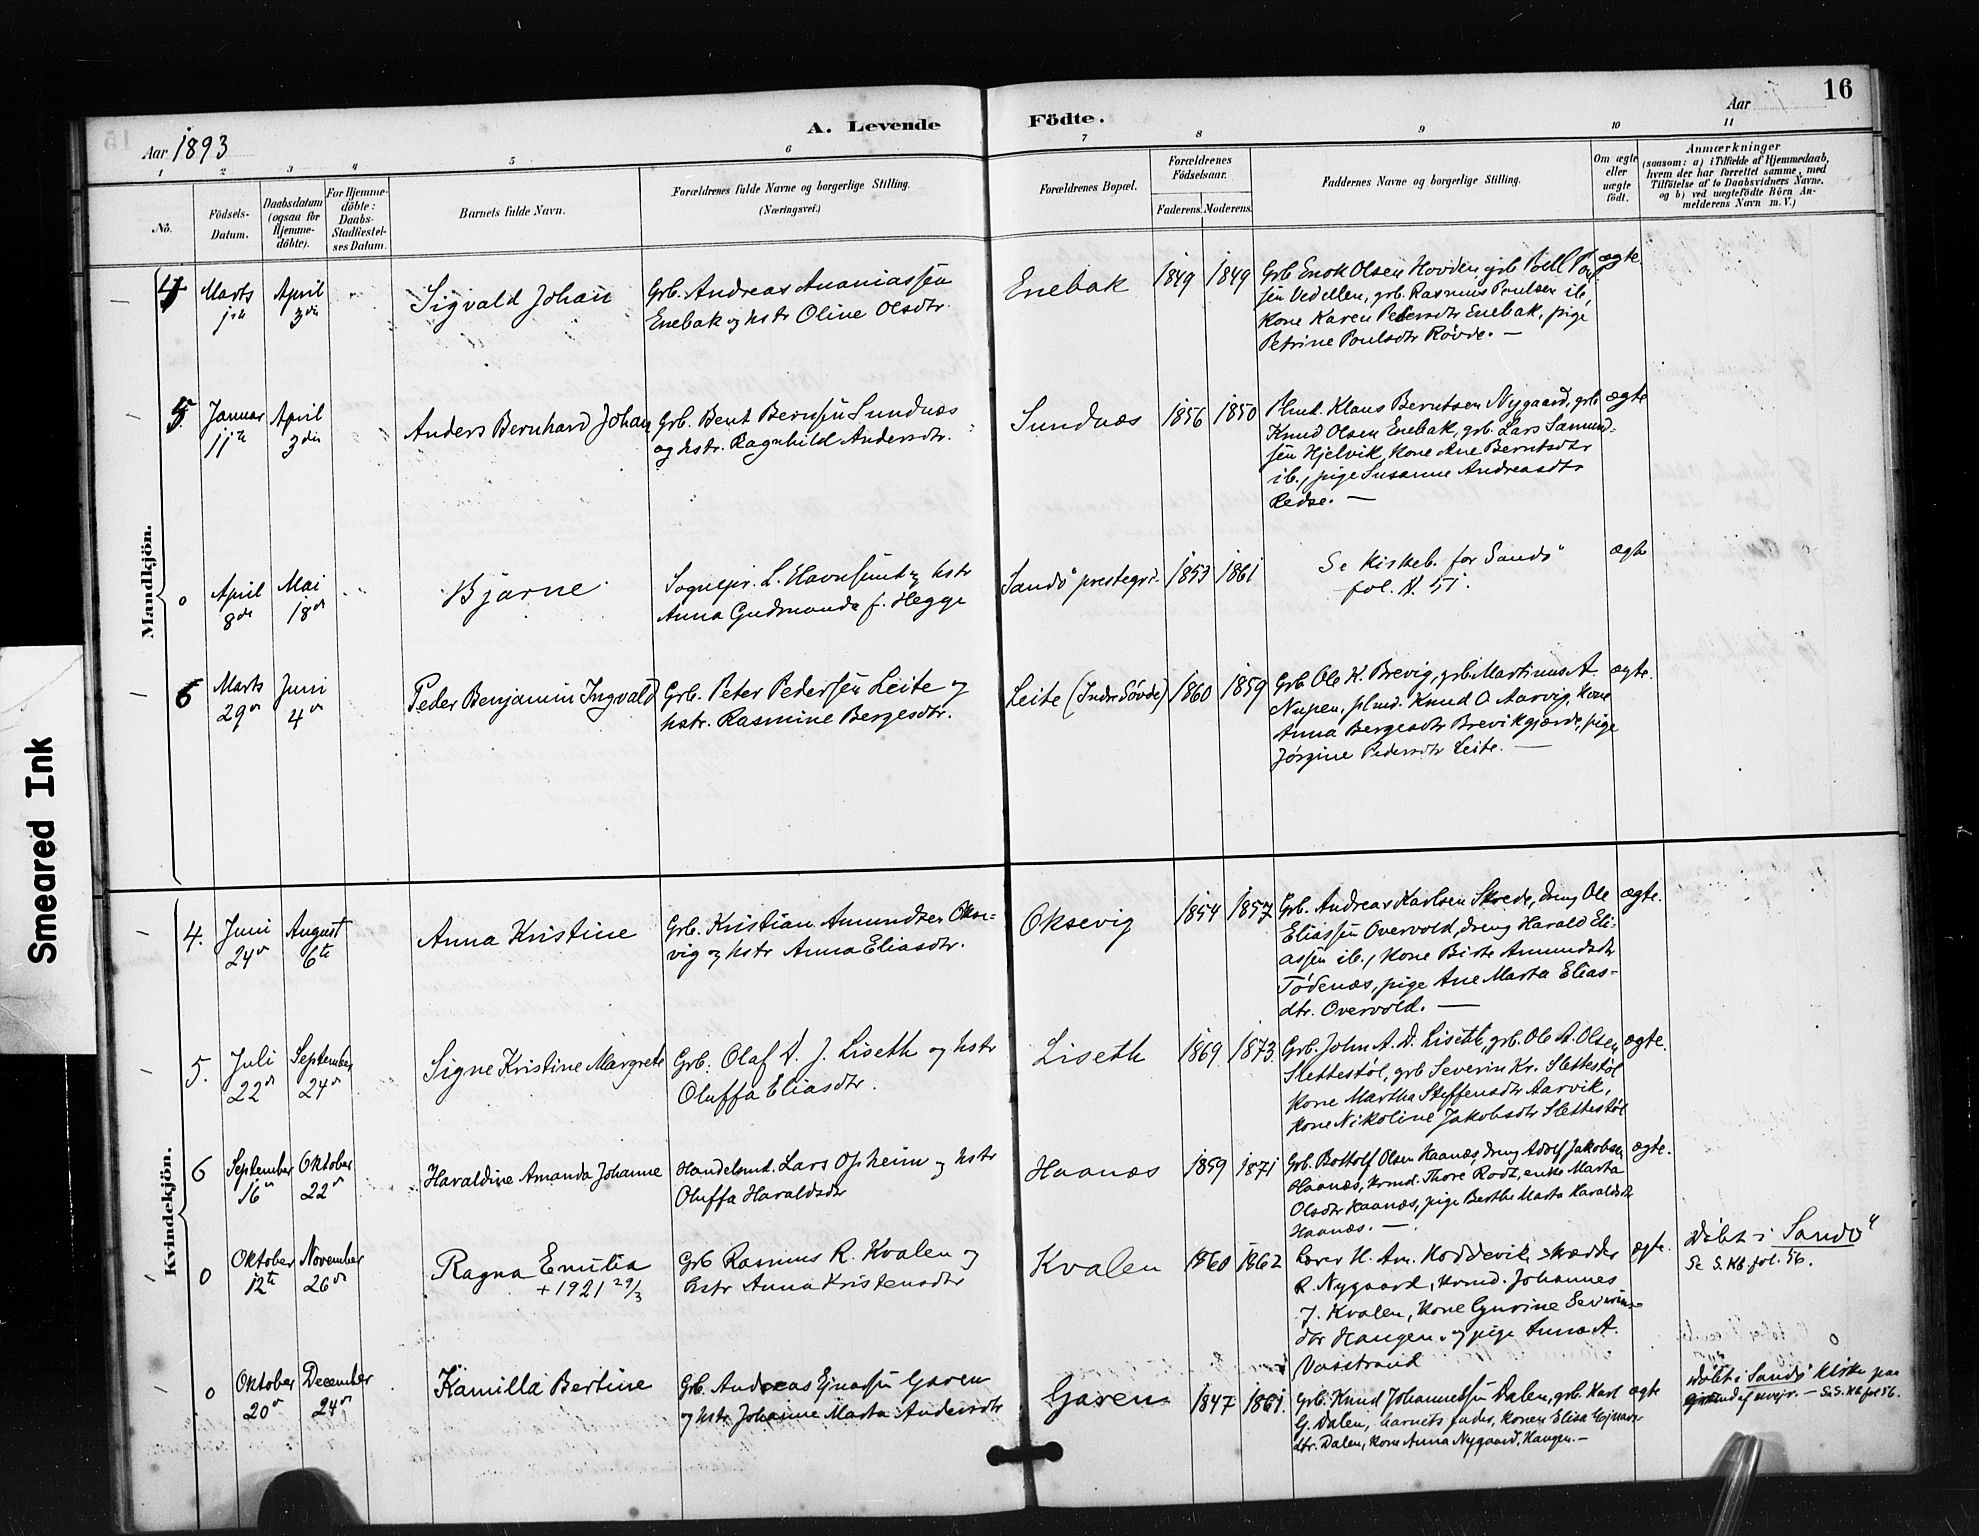 16
Aar 1893
A. Levende Födte.
Aar
1 2 3 4 5 6 7 8 9 10 11
No.
Födsels-
Datum.
Daabsdatum
(ogsaa for
Hjemme-
döbte).
For Hjemme-
döbte:
Daabs-
Stadfæstel-
ses Datum.
Barnets fulde Navn.
Forældrenes fulde Navne og borgerlige Stilling.
(Næringsvei.)
Forældrenes Bopæl.
Forældrenes
Födselsaar.
Faderens. Moderens.
Faddernes Navne og borgerlige Stilling.
Om ægte
eller
uægte
födt.
Anmærkninger
(saasom: a) i Tilfælde af Hjemmedaab,
hvem der har forrettet samme, med
Tilföielse af to Daabsvidners Navne,
og b) ved uægtefödte Börn An-
melderens Navn m. V.)
Mandkjön.
4
Marts
April
3die
Sigvald Johan
Grb. Andreas Ananiassen
Enebak og hstr Oline Olsdtr.
Enebak
1849 1849
Grb Enok Olsen Hovden, grb Poul Poul-
sen Vedellen, grb. Rasmus Poulsen ib,
kone Karen Pedersdtr Enebak, pige
Petrine Poulsdtr Røvde. —
ægte.
5
Januar
11te
April
3die
Anders Bernhard Johan
Grb. Bent Berntsen Sundnæs
og hstr. Ragnhild Andersdtr.
Sundnæs
1856 1850
Plmd. Klaus Berntsen Nygaard, grb
Knud Olsen Enebak, grb. Lars Samund-
sen Hjelvik, kone Ane Berntsdtr
ib., pige Susanne Andreasdtr
Redse. —
ægte
0
April
8de
Mai
18de
Bjarne
Sognepr. L. Havnsund og hstr
Anna Gudmunda f. Hegge
Sandö prestegrd.
1853 1861
Se Kirkeb. for Sandö
fol. 51.
ægte
6
Marts
29de
Juni
4de
Peder Benjamin Ingvald
Grb. Peter Pedersen Leite og
hstr. Rasmine Bergesdtr.
Leite (Indr. Sövde)
1860 1859
Grb Ole K. Brevig, grb Martinus A.
Nupen, plmd. Knud O Aarvig, kone
Anna Bergesdtr Brevikgjærde, pige
Jørgine Pedersdtr Leite. —
ægte.
Kvindekjön.
4.
Juni
24de
August
6te
Anna Kristine
Grb. Kristian Amundsen Okse-
vig og hstr Anna Eliasdtr.
Oksevig
1854 1857
Grb. Andreas Karlsen Skrede, dreng Ole
Eliassen Overvold, dreng Harald Eli-
assen ib., kone Birte Amundsdtr
Tödenæs, pige Ane Marta Elias-
dtr. Overvold. —
ægte.
5.
Juli
22de
September
24de
Signe Kristine Margrete
Grb. Olaf A. J. Liseth og hstr
Oluffa Eliasdtr.
Liseth
1869 1873.
Grb. John A. D. Liseth, grb. Ole A. Olsen
Slettestøl, grb Severin Kr. Slettestøl
kone Martha Steffensdtr Aarvik,
kone Nikoline Jakobsdtr Slettestøl
ægte.
6
September
16de
Oktober
22de
Haraldine Amanda Johanne
Handelsmd. Lars Opheim og hstr
Oluffa Haraldsdtr
Haanæs
1859 1871
Grb. Bottolf Olsen Haanæs, dreng Adolf Jakobsen
Haanæs, krmd. Thore Rodt, enke Marta
Olsdtr Haanæs, pige Berthe Marta Haraldsdtr
Haanæs. —
ægte.
0
Oktober
12te
November
26de
Ragna Emilia
+ 1921 29/3
Grb Rasmus R. Kvalen og
hstr Anna Kristensdtr
Kvalen
1860 1862
Lærer H. Am. Hoddevik, skrædder
R. Nygaard, krmd. Johannes
J. Kvalen, kone Gurine Severins-
dtr Haugen, og pige Anna A.
Vaastrand
ægte.
Döbt i Sandö
Se S. Kb. fol. 56.
0
Oktober
20de
December
24de
Kamilla Bertine
Grb. Andreas Ejnarsen Garen
og hstr. Johanne Marta Andersdtr
Garen
1847 1861.
Grb. Knud Johannessen Dalen, grb. Karl
G. Dalen, barnets fader, konen Elisa Ejnars-
dtr. Dalen, kone Anna Nygaard, Haugen. —
ægte
Döbt i Sandö Kirke paa
grund af uvejr. — Se S. Kb fol 56.
Smeared Ink